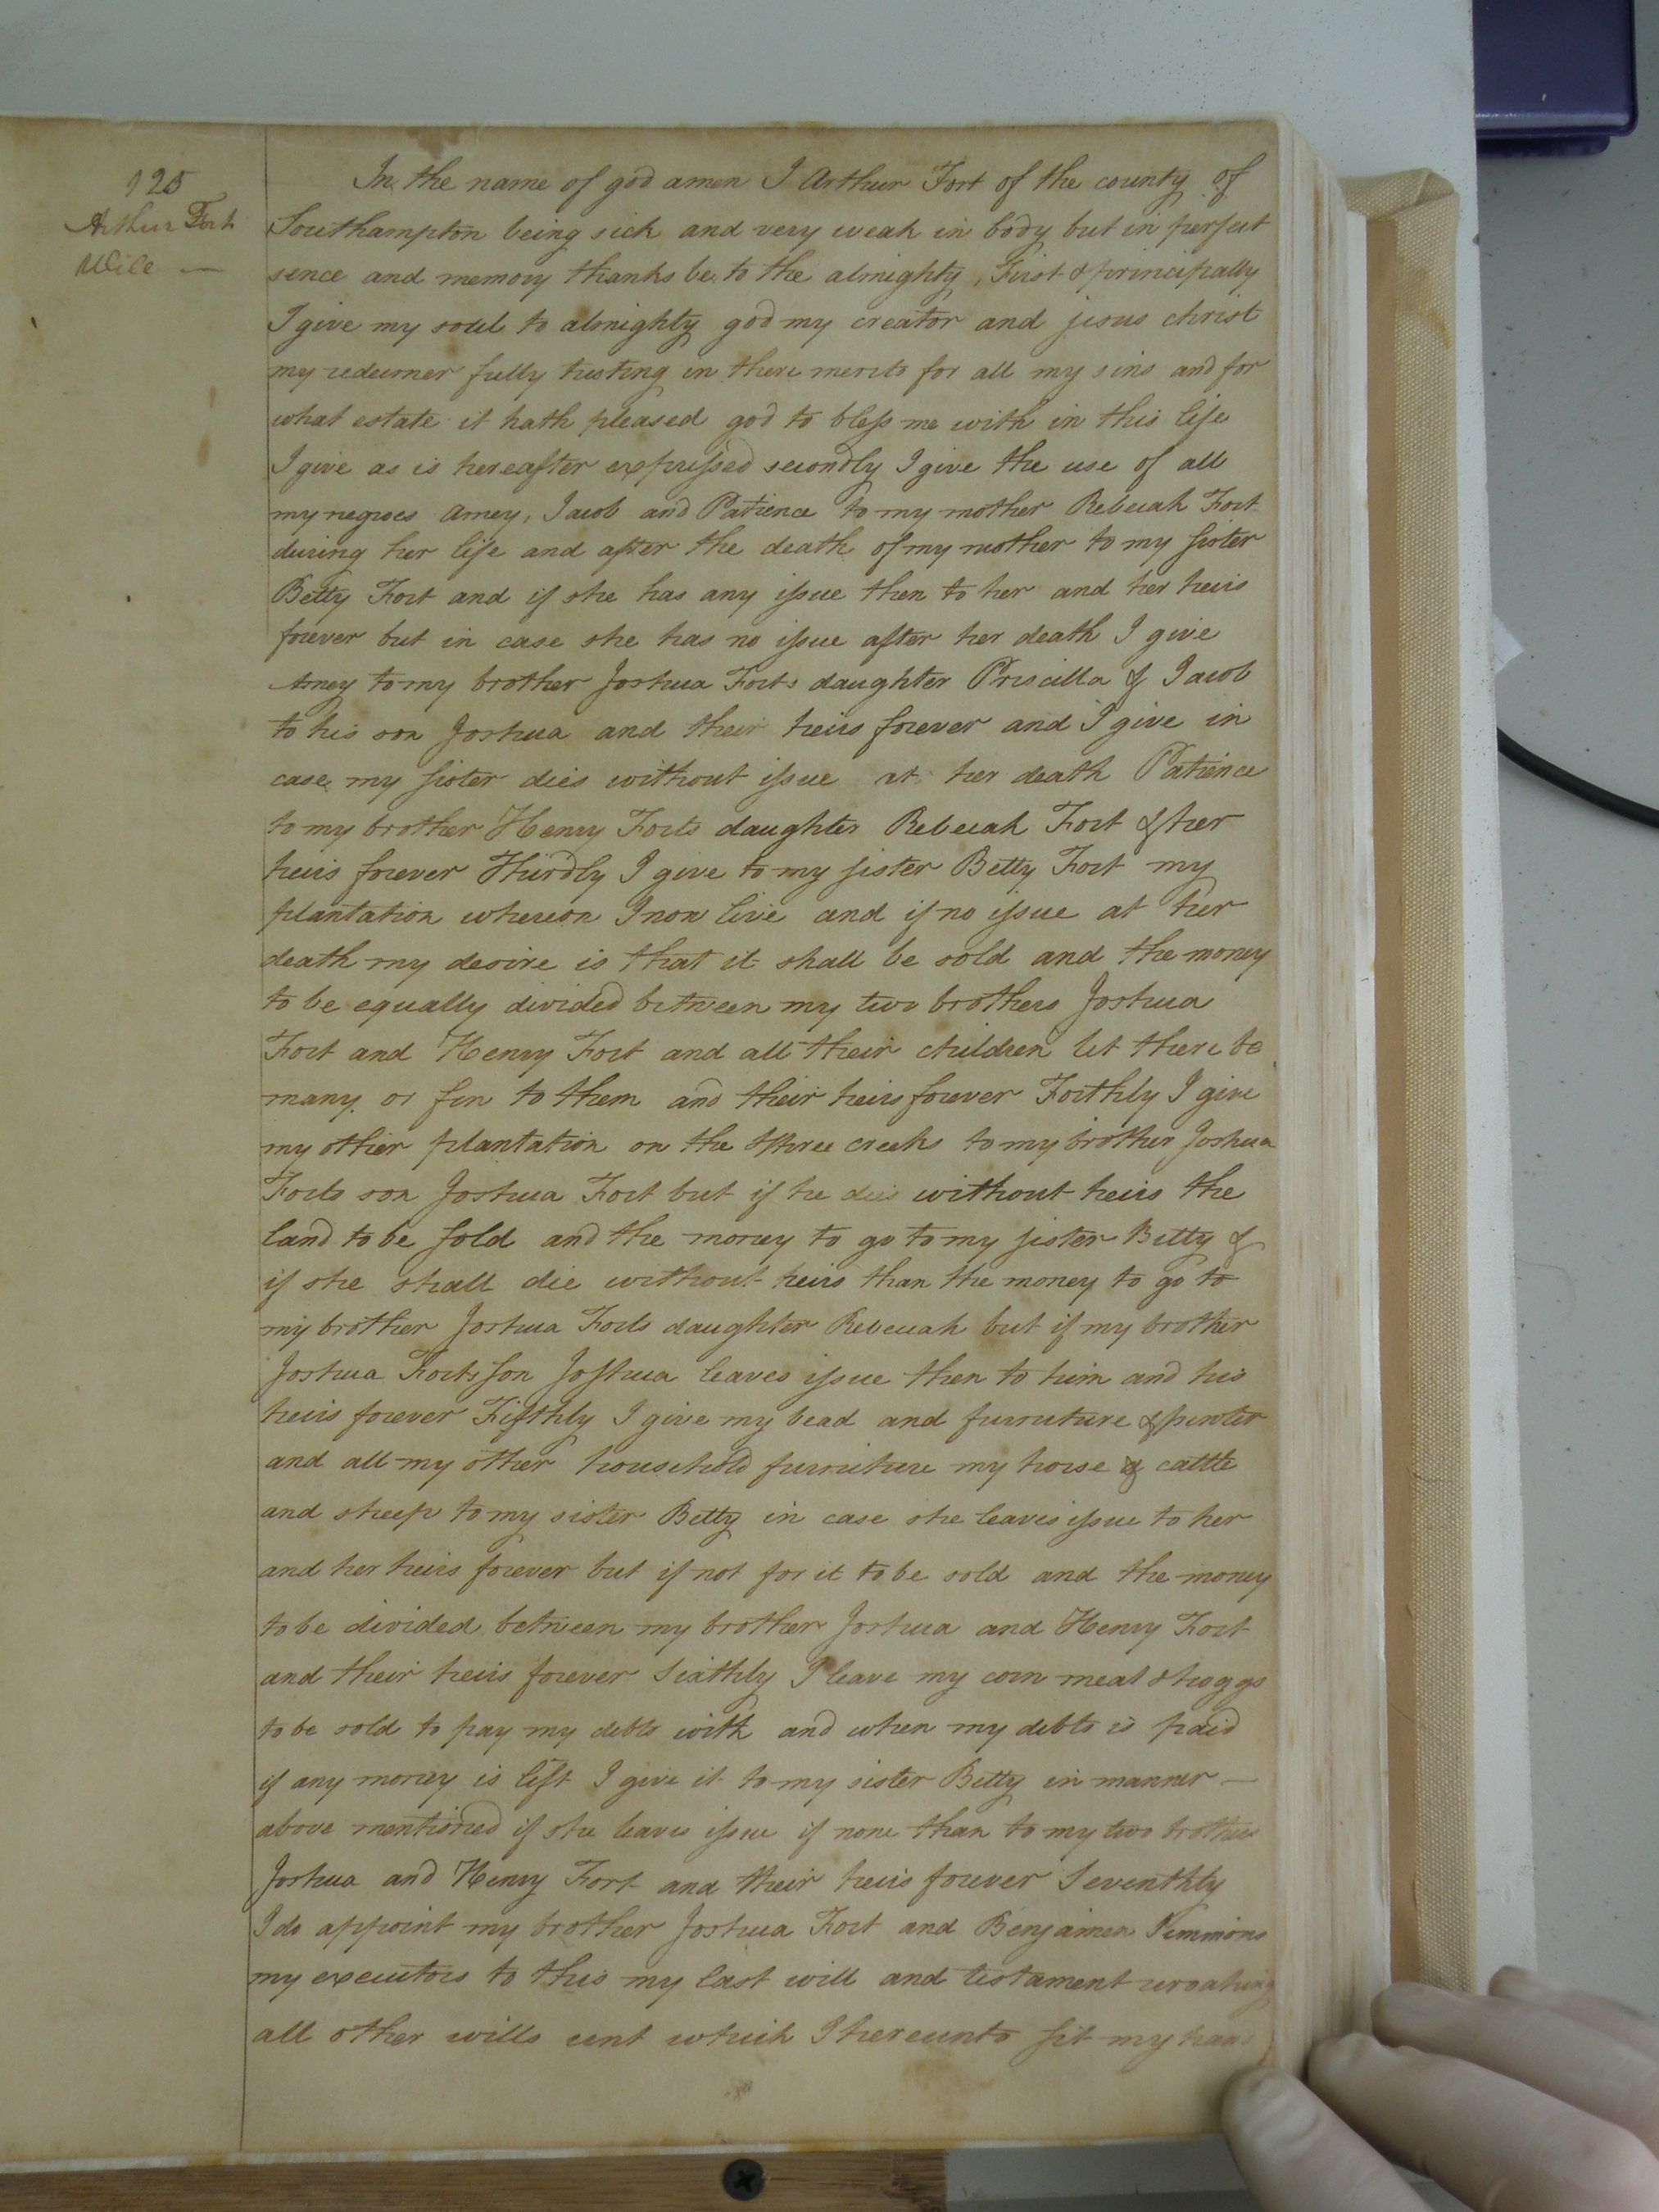 125
Arthur Fort
Will —
In the name of god amen I Arthur Fort of the county of
Southampton being sick and very weak in body but in perfect
sence and memory thanks be to the almighty, First & principally
I give my soul to almighty god my creator and jesus christ
my redeemer fully trusting in there merits for all my sins and for
what estate it hath pleased god to bless me with in this life
I give as is hereafter expressed secondly I give the use of all
my negroes Amey, Jacob and Patience to my mother Rebecah Fort
during her life and after the death of my mother to my sister
Betty Fort and if she has any issue then to her and her heirs
forever but in case she has no issue after her death I give
Amey to my brother Joshua Forts daughter Priscilla & Jacob
to his son Joshua and their heirs forever and I give in
case my sister dies without issue at her death Patience
to my brother Henry Forts daughter Rebecah Fort & her
heirs forever Thirdly I give to my sister Betty Fort my
plantation whereon I now live and if no issue at her
death my desire is that it shall be sold and the money
to be equally divided between my two brothers Joshua
Fort and Henry Fort and all their children let there be
many or few to them and their heirs forever Forthly I give
my other plantation on the three creeks to my brother Joshua
Forts son Joshua Fort but if he dies without heirs the
land to be sold and the money to go to my sister Betty &
if she shall die without heirs than the money to go to
my brother Joshua Forts daughter Rebecah but if my brother
Joshua Forts son Joshua leaves issue then to him and his
heirs forever Fifthly I give my bead and furniture & pewter
and all my other household furniture my horse & cattle
and sheep to my sister Betty in case she leaves issue to her
and her heirs forever but if not for it to be sold and the money
to be divided between my brother Joshua and Henry Fort
and their heirs forever Sixthly I leave my corn meat & hoggs
to be sold to pay my debts with and when my debts is paid
if any money is left I give it to my sister Betty in manner —
above mentioned if she leaves issue if none than to my two brothers
Joshua and Henry Fort and their heirs forever Seventhly
I do appoint my brother Joshua Fort and Benjamen Simmons
my executors to this my last will and testament
all other wills unt which I hereunto sit my hand